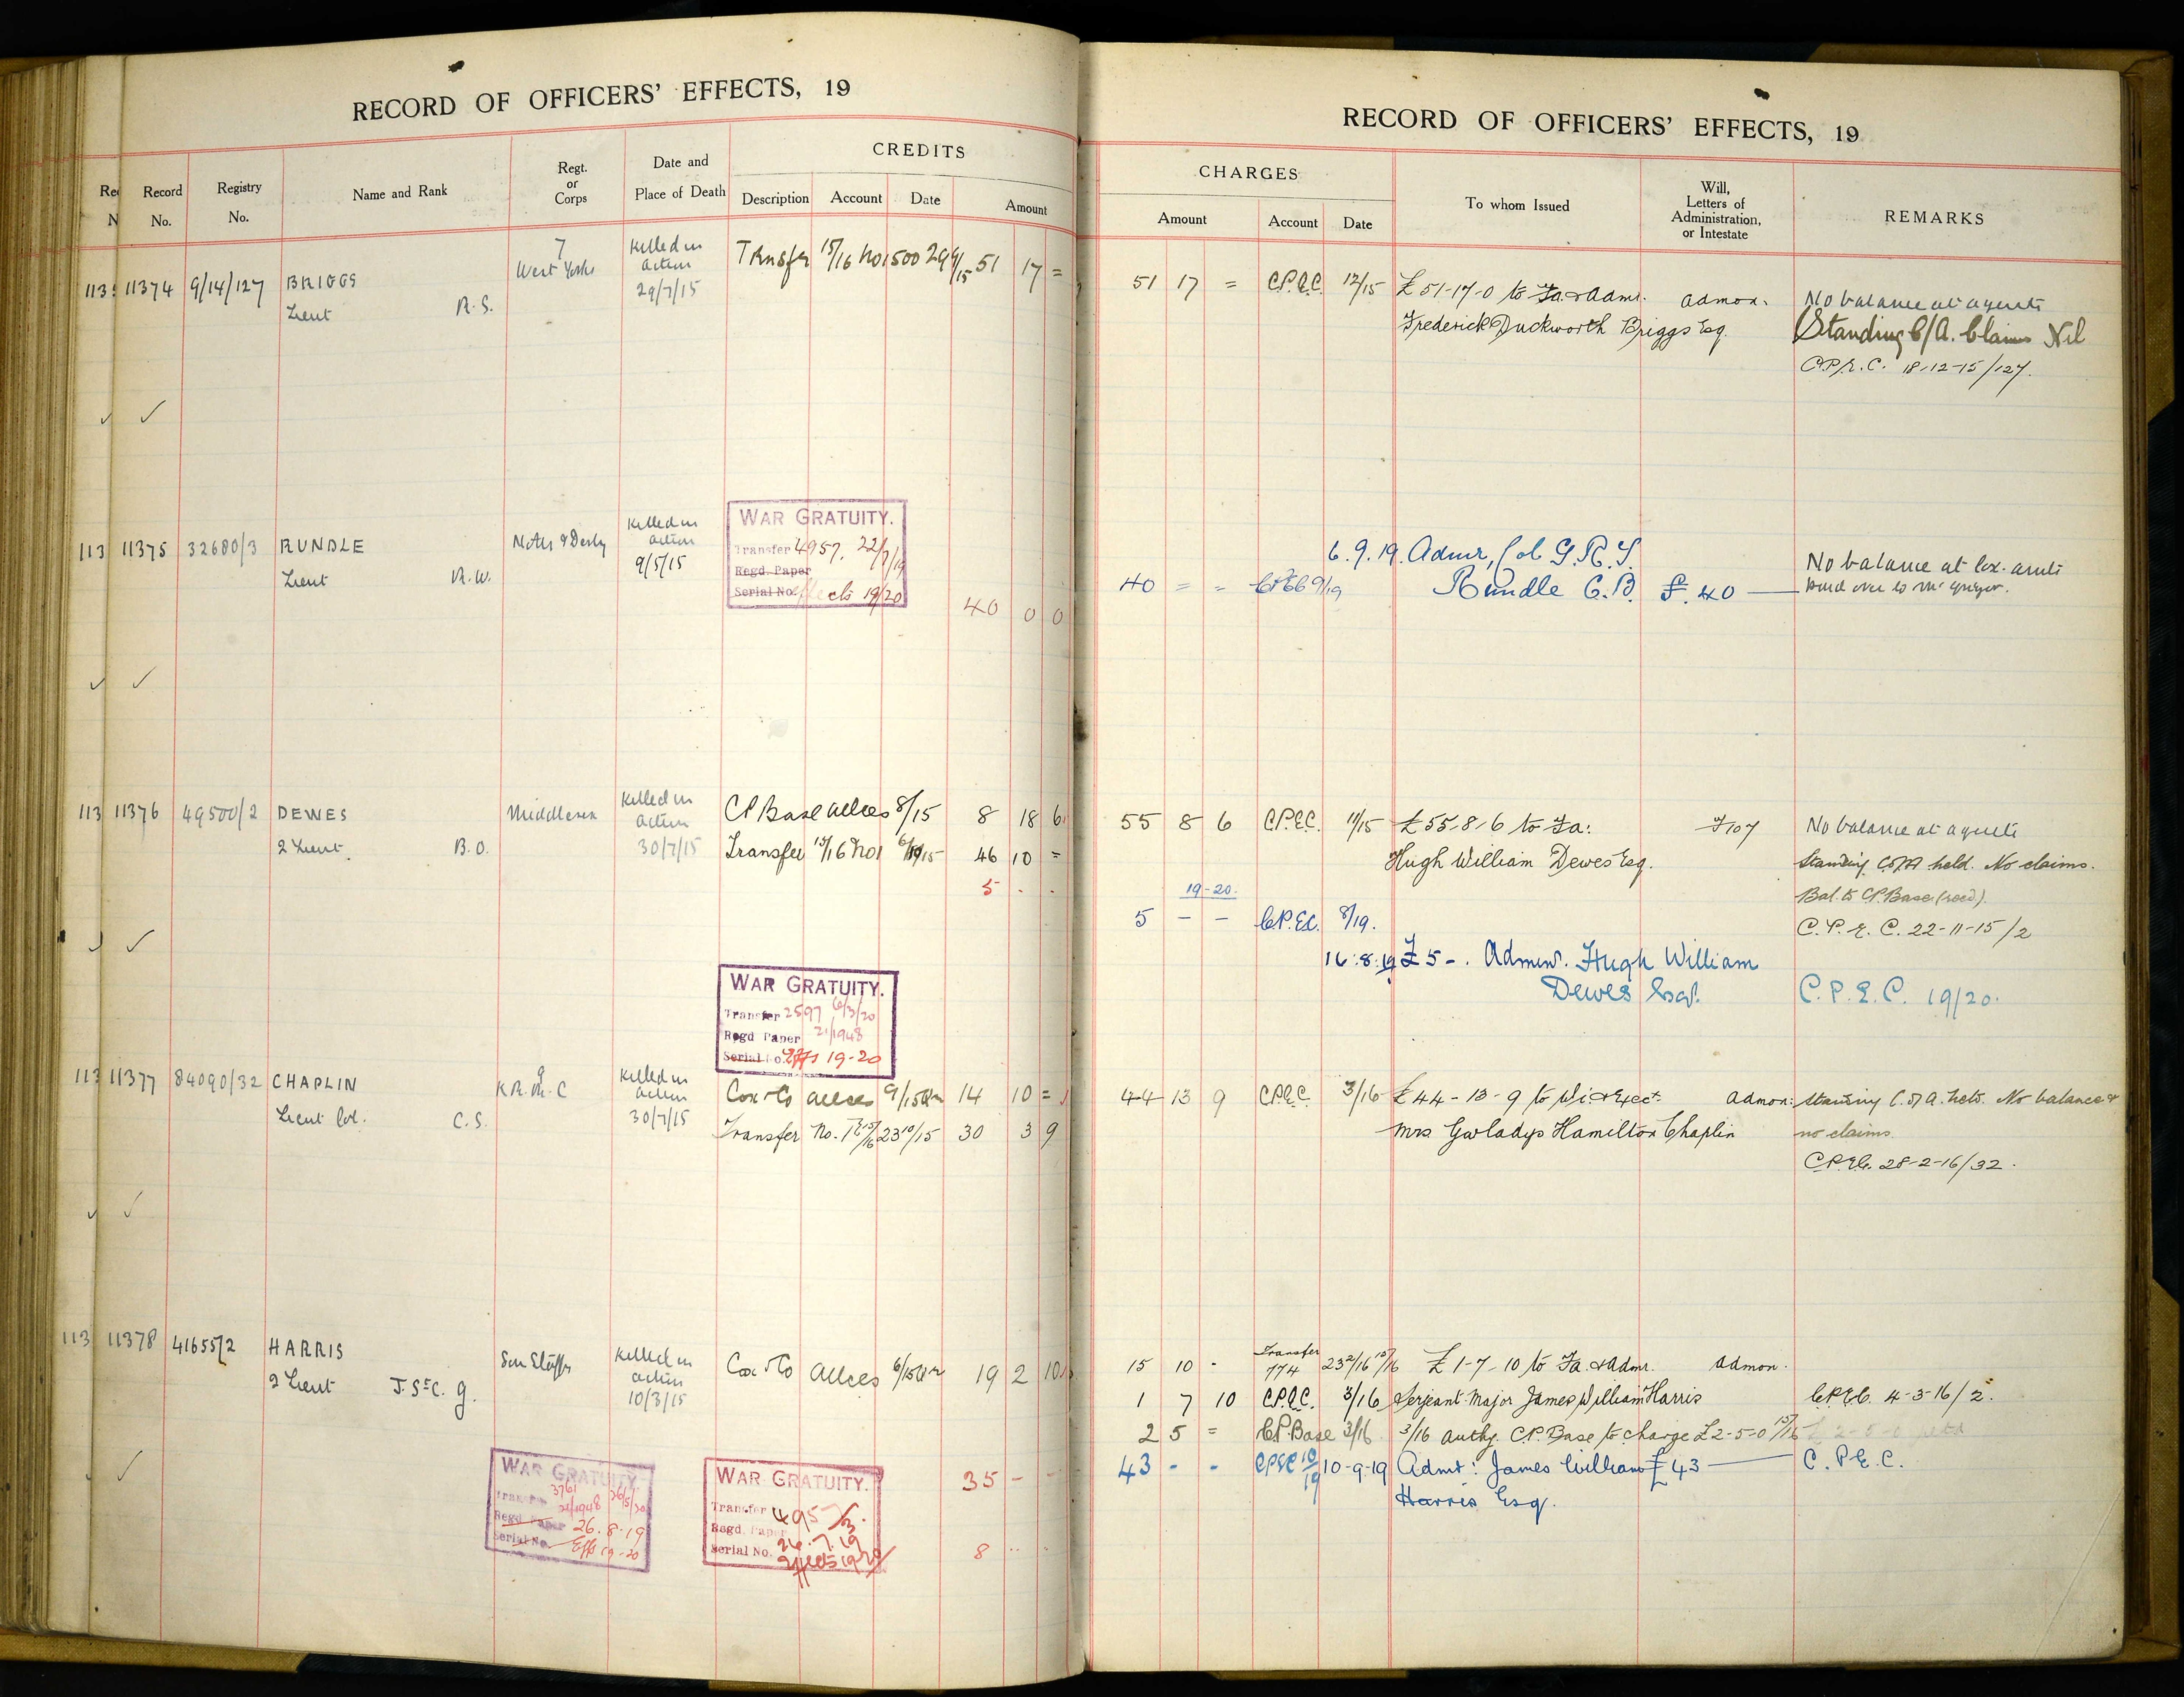 RECORD OF OFFICERS' EFFECTS, 19
Record No.
Registry No.
Name and Rank
Regt. or Corps
Date and Place of Death
CREDITS
Description
Account
Date
Amount
11374 9/14/127 BRIGGS
Lieut R.S.
7 West Yorks
Killed in action 29/7/15
Transfer 15/16 No 1500 51 17 =
11375 32680/3 RUNDLE
Lieut R.W.
Notts & Derby
Killed in action 9/5/15
WAR GRATUITY.
Transfer 4957. 22/7/19
Regd. Paper
Serial No. Effects 19/20
40 0 0
11376 49500/2 DEWES
2 Lieut. B.O.
Middlesex
Killed in action 30/7/15
CP Base acces 8/15 8 18 6
Transfer 15/16 No1 46 10 =
5 - -
WAR GRATUITY.
Transfer 2597 6/3/20
Regd Paper 21/1948
Serial No. Effs 19-20
11377 84090/32 CHAPLIN
Lieut Col. C.S.
9 K.R.R.C
Killed in action 30/7/15
Cox & Co acces 9/15 14 10 =
Transfer No. 1 15/16 23 10/15 30 3 9
11378 41655/2 HARRIS
2 Lieut J. St C. G.
Sou Staffs
Killed in action 10/3/15
Cox & Co acces 6/15 19 2 10
WAR GRATUITY.
Transfer 3761 26/5/20
21/1948
Regd. Paper 26.8.19
Serial No. Effs 19-20
WAR GRATUITY.
Transfer 495
Regd. Paper
Serial No. 26.7.19
Effects 19/20
35 - -
8 - -
RECORD OF OFFICERS' EFFECTS, 19
CHARGES
Amount
Account
Date
To whom Issued
Will, Letters of Administration, or Intestate
REMARKS
51 17 = C.P.E.C. 12/15 £51-17-0 to Fa. & Admr. Admon. No balance at agents
Frederick Duckworth Briggs Esq. Standing C/A. Claims Nil
C.P.E.C. 18-12-15/127.
6.9.19. Admr, Col G.R.T. No balance at
40 = = 9/19 Rundle C.B. £.40
55 8 6 C.P.E.C. 11/15 £55-8-6 to Fa: F107 No balance at agents
Hugh William Dewes Esq. Standing C of A held. No claims.
19-20. Bal. to C.P. Base (recd).
5 - - C.P.E.C. 8/19. C.P.E.C. 22-11-15/2
16.8.19 £5-. Admin. Hugh William
Dewes Esq. C.P.E.C. 19/20.
44 13 9 C.P.E.C. 3/16 £44-13-9 to Wi. & Exect. Admon: Standing C. of A. held. No balance &
Mrs Gwladys Hamilton Chaplin no claims.
C.P.E.C. 28-2-16/32.
15 10 - Transfer 774 23 2/16 15/16 £1-7-10 to Fa. & Admr. Admon.
1 7 10 C.P.E.C. 3/16 Serjeant-Major James William Harris C.P.E.C. 4-3-16/2.
2 5 = C.P. Base 3/16 3/16 Authy. C.P. Base to charge £2-5-0 15/16
43 - - CPEC 10/19 10-9-19 Admr: James William £43 C.P.E.C.
Harris Esq.